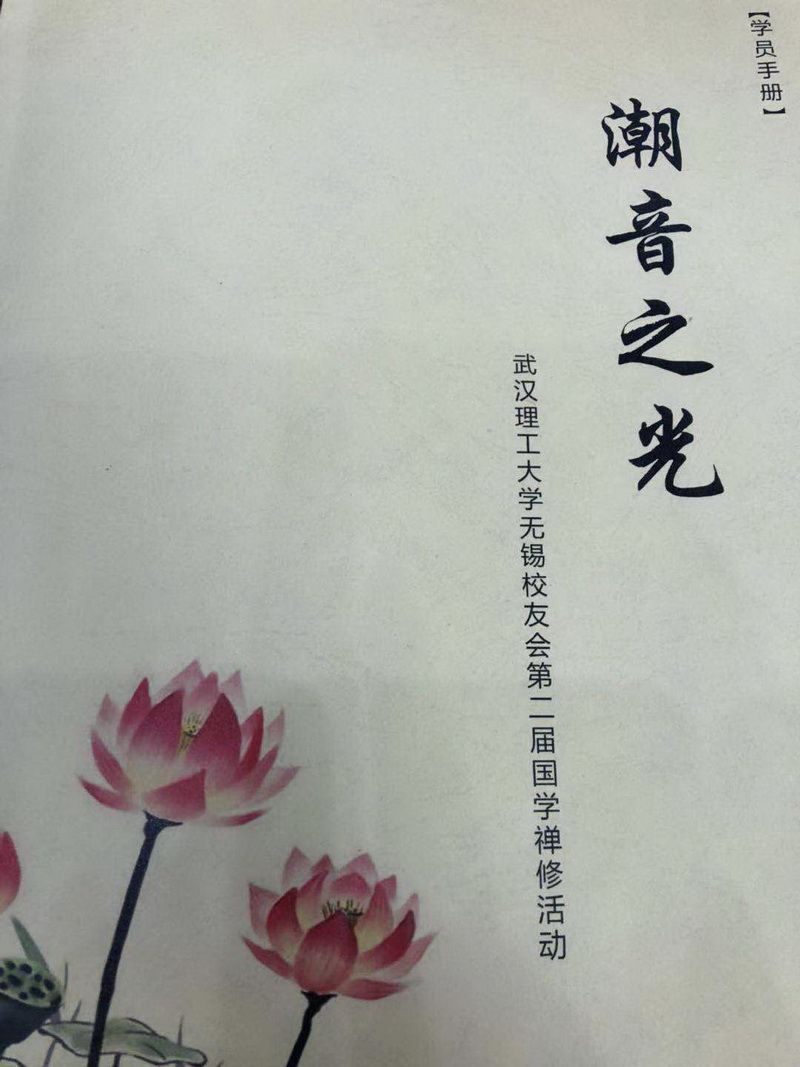 【学员手册】
潮音之光
武汉理工大学无锡校友会第二届国学禅修活动